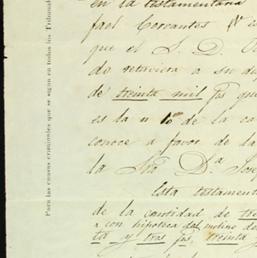 en la testamentaria
fael Cervantes
que el S. D.
do retuviera a su
de treinta mil ps que
es la n 10 de la ca
conoce a favor de la
la Sra Da Jose
Esta testament
de la cantidad de tre
con hipoteca del molino de
tis y tras ps, treinta y
Para las causas criminales que se sigan en todos los Tribunal